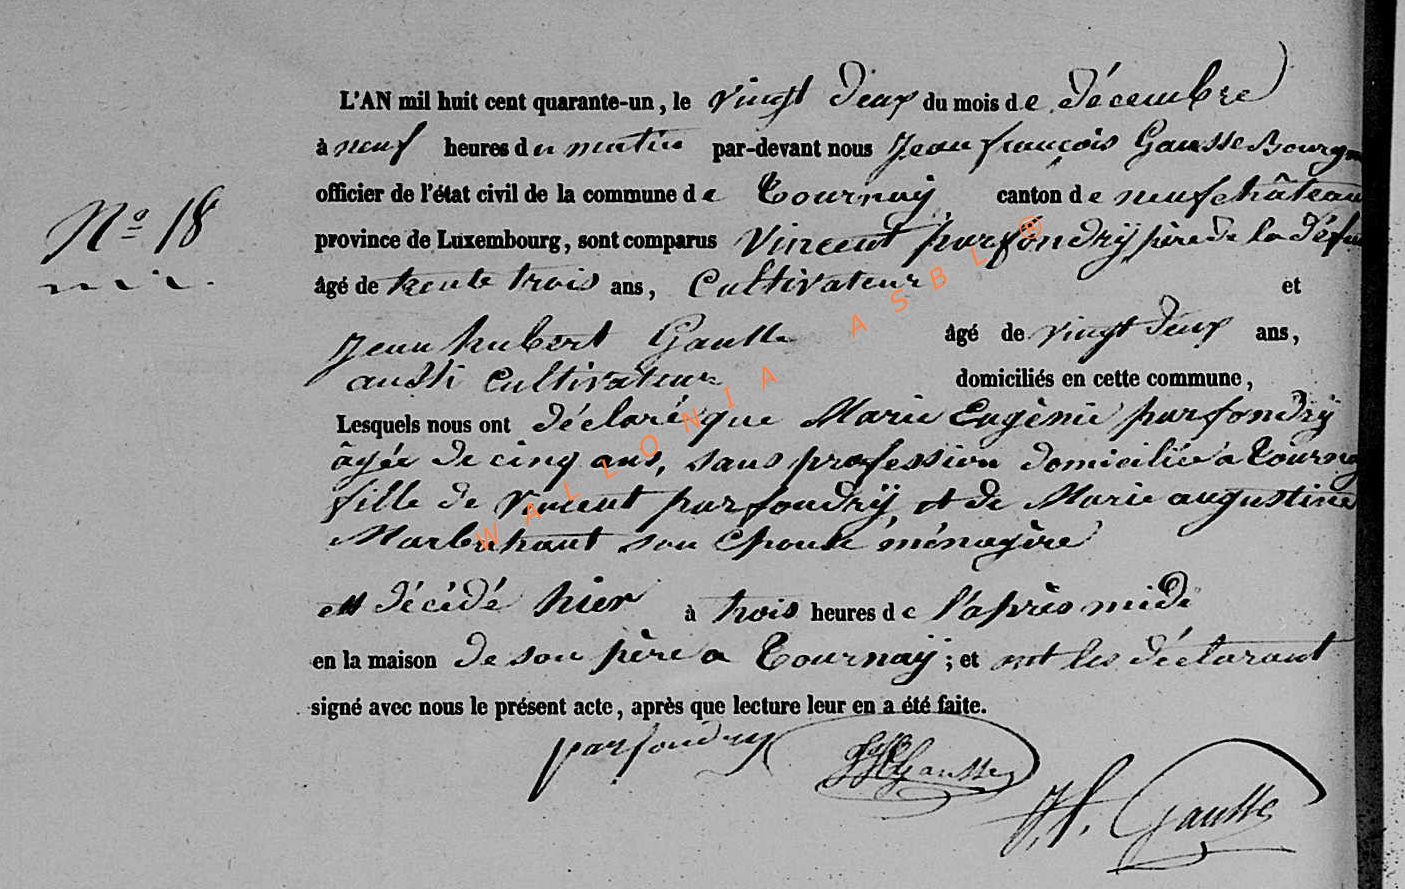 L'AN mil huit cent quarante-un, le vingt deux du mois de décembre
à neuf heures du matin par-devant nous Jean françois Gausse Bourgm
officier de l'état civil de la commune de Tournaÿ canton de neufchâteau
N° 18
province de Luxembourg, sont comparus Vincent parfondrÿ père de la défun
âgé de trente trois ans, Cultivateur et
Jean hubert Gausse âgé de vingt deux ans,
aussi Cultivateur domiciliés en cette commune,
Lesquels nous ont déclaré que Marie Eugènie parfondrÿ
âgée de cinq ans, sans profession domiciliée à Tournaÿ
fille de Vincent parfondrÿ et de Marie augustine
Marbehant son Epouse ménagère
est décédé hier à trois heures de l'après midi
en la maison de son père a Tournaÿ; et ont les déclarant
signé avec nous le présent acte, après que lecture leur en a été faite.
parfondry JHGausse
J.f. Gausse
WALLONIA ASBL ®